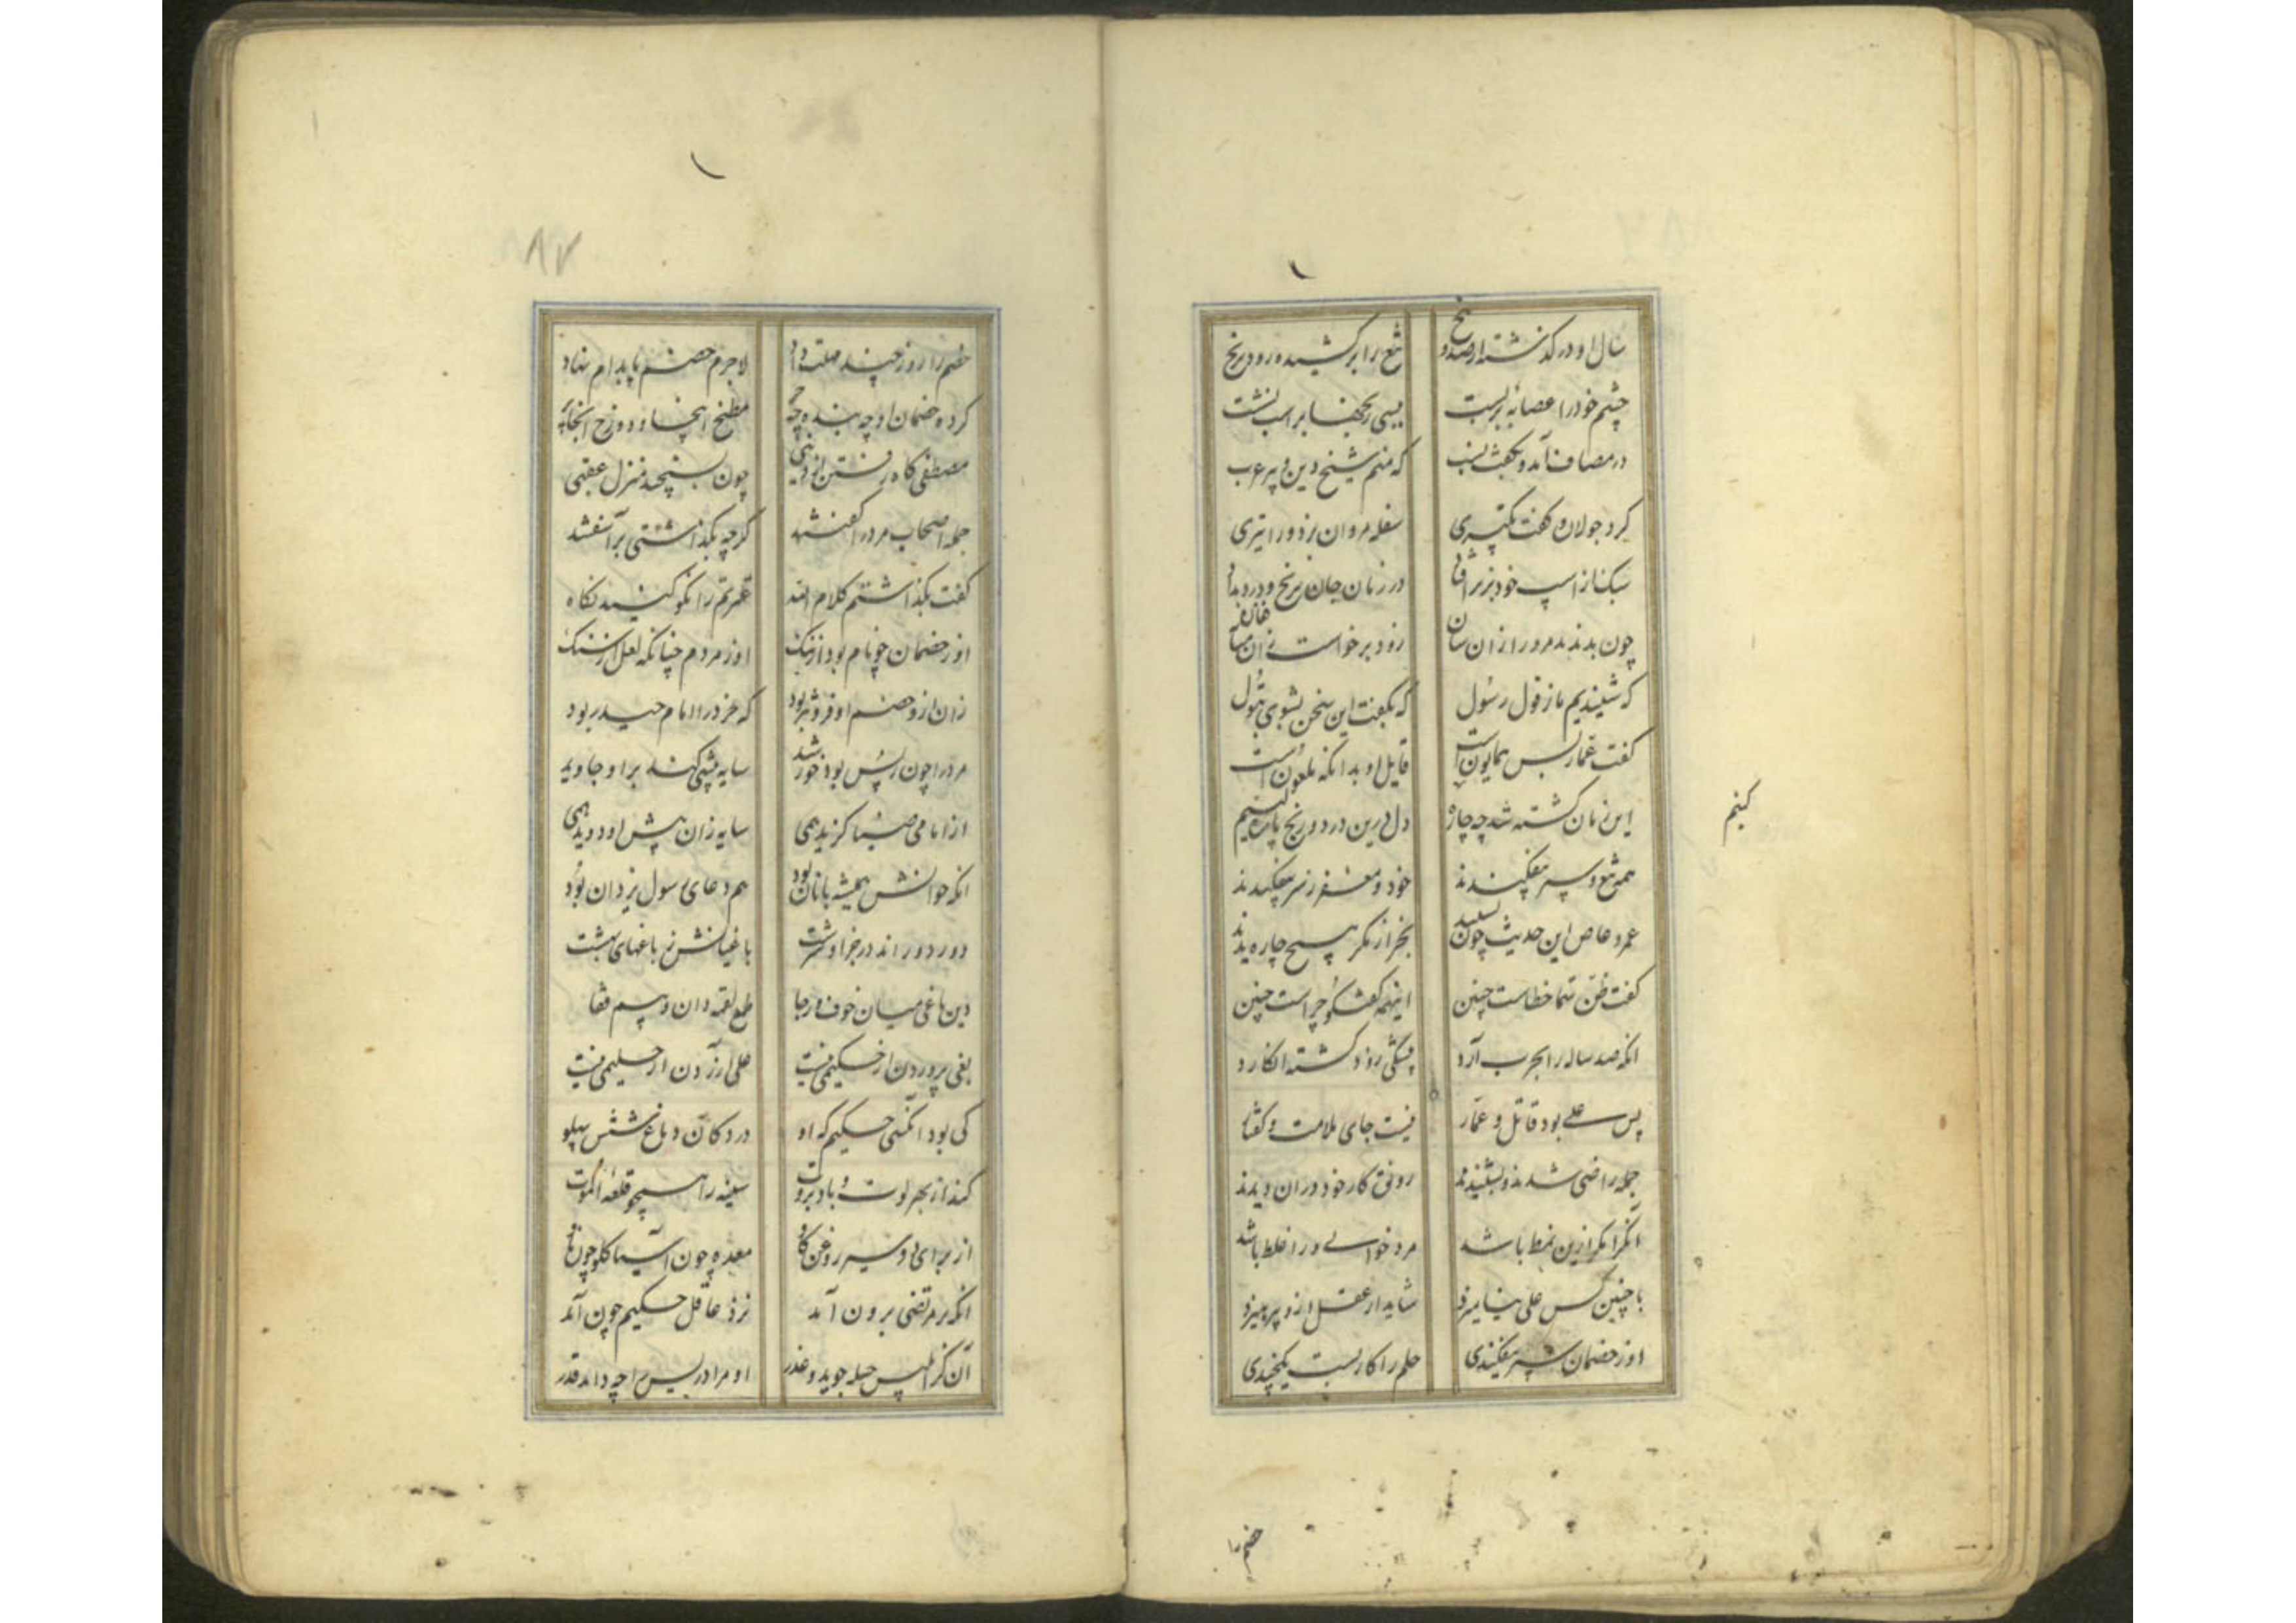 سال او در گذشته از صد و پنج
تیغ را بر کشیده و رود برنج
چشم خود را عصابهٔ بر بست
بر اسب نشست
در مصاف آمد و بگفت نسب
که منم شیخ دین و پیر عرب
کرد جولان و گفت تکبیری
سفله مروان بزد ورا تیری
سبک از اسپ خود بزیر افتاد
در زمان جان برنج و درد بداد
چون بدیدند مرورا زان سان
زود برخاست زان میانه فغان
که شنیدیم ما ز قول رسول
که بگفت این سخن بشوی بتول
گفت عمار بس همایون است
قایل او بدانکه ملعون است
این زمان کشته شد چه چاره کنیم
دل درین درد و رنج پاره کنیم
همه تیغ و سپر بیفکندند
خود و مغفر ز سر بیفکندند
عمرو عاص این حدیث چون بشنید
بجز از مکر هیچ چاره ندید
گفت ظن شما خطاست چنین
اینهمه گفتگو چراست چنین
آنکه صد ساله را بحرب آرد
کشته انگارد
پس علی بود قاتل عمار
نیست جای ملامت و گفتار
جمله راضی شدند و بشنیدند
رونق کار خود در آن دیدند
آنکرا مکر ازین نمط باشد
مرد خوانی ورا غلط باشد
با چنین کس علی نیامیزد
شاید ار عقل ازو بپرهیزد
او ز خصمان سپر بیفکندی
حلم را کار بست یکچندی
کنیم
خصم را
۸۷
خصم را روز چند مهلت داد
لاجرم خصم پا بدام نهاد
کرده خصمان او چه بنده چه
مطبخ اینجا و دوزخ آنجا به
مصطفی گاه رفتن از دنیی
چون بسیچید منزل عقبی
جمله اصحاب مرورا گفتند
گرچه بگذاشتی بر آشفتند
گفت بگذاشتم کلام الله
عترتم را نکو کنید نگاه
او ز خصمان چو نام بود از ننگ
او ز مردم چنانکه لعل از سنگ
زان ازو خصم او فروتر بود
که خرد را امام حیدر بود
مرورا چون ز پس بود خورشید
سایه پیشی کند بر او جاوید
از امامی ضیا گزید همی
سایه زان پیش او دوید همی
آنکه خوانش همیشه با نان بود
هم دعای رسول یزدان بود
دور دور آمد در خراد سرشت
باغبانش ز باغهای بهشت
دین باغی میان خوف و رجا
طمع لقمه دان و بیم قفا
بغی پروردن از حکیمی نیست
علی آزردن از حلیمی نیست
کی بود آنکسی حکیم که او
در دکان دماغ شش پهلو
کند از بهر لوت و باد بروت
سینه را همچو قلعه الموت
از برای دو سیر روغن گاو
معده چون آسیا گلو چون ناو
آنکه بر مرتضی برون آمد
نزد عاقل حکیم چون آمد
آن کز ابلیس حیله جوید و غدر
او مر ادریس را چه داند قدر